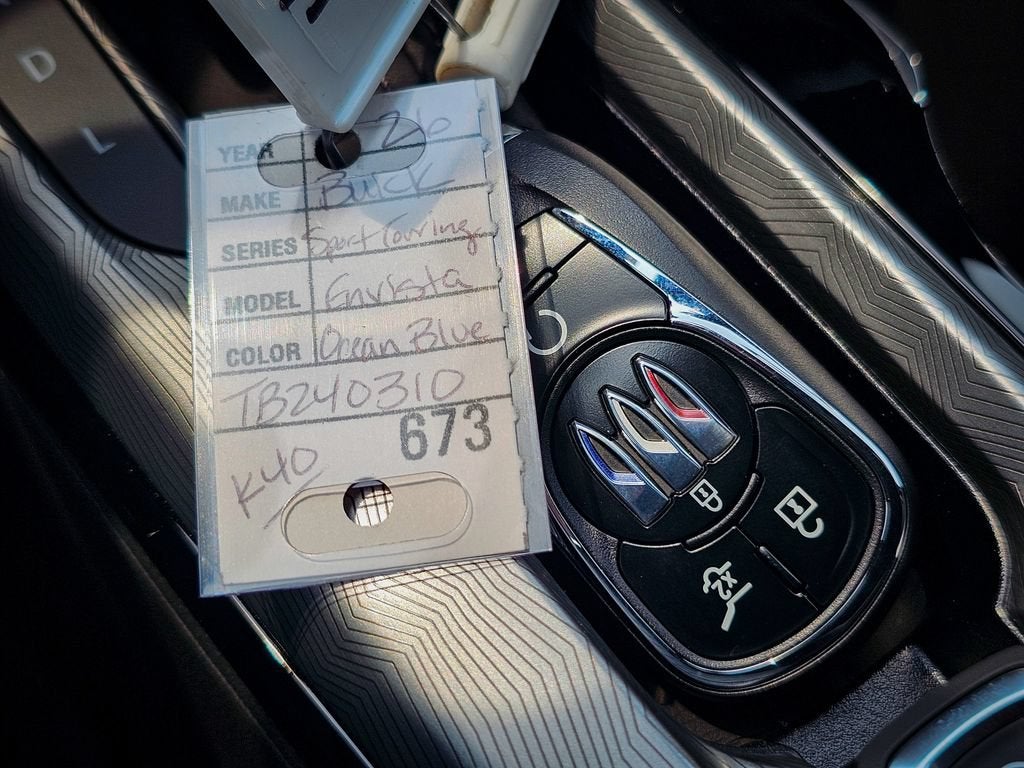 D
L
YEAR 26
MAKE Buick
SERIES Sport Touring
MODEL Envista
COLOR Ocean Blue
TB240310
673
K40
X2